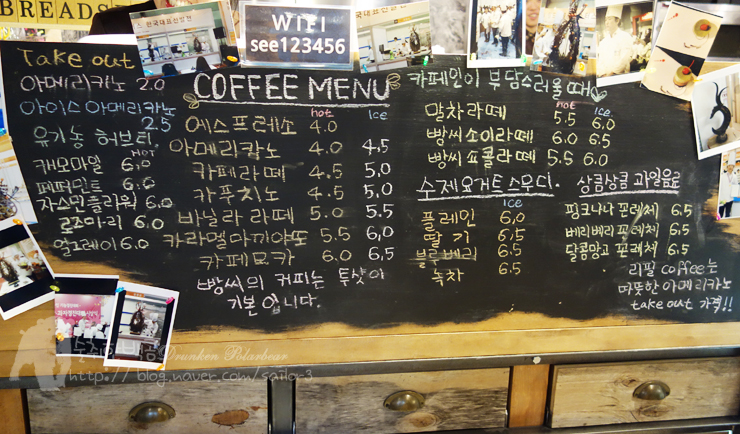 BREADS
한국대표선발전
WIFI
see123456
Take out
아메리카노 2.0
아이스아메리카노
2.5
유기농 허브티
HOT
캐모마일 6.0
페퍼민트 6.0
자스민플라워 6.0
로즈마리 6.0
얼그레이 6.0
COFFEE MENU
hot Ice
에스프레소 4.0
아메리카노 4.0 4.5
카페라떼 4.5 5.0
카푸치노 4.5 5.0
바닐라 라떼 5.0 5.5
카라멜마끼야또 5.5 6.0
카페모카 6.0 6.5
빵씨의 커피는 투샷이
기본입니다.
카페인이 부담스러울때
hot Ice
말차라떼 5.5 6.0
빵씨소이라떼 6.0 6.5
빵씨쇼콜라떼 5.5 6.0
수제요거트스무디.
ice
플레인 6.0
딸기 6.5
블루베리 6.5
녹차 6.5
상큼상큼 과일음료
핑크나나 프레쳐 6.5
베리베리프레쳐 6.5
달콤망고 프레쳐 6.5
리필 coffee는
따뜻한아메리카노
take out 가격!!
Drunken Polarbear
http://blog.naver.com/sailor3